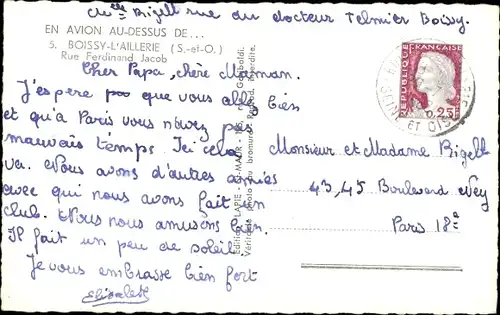 Elle Bizell rue du docteur Telmier Boissy.
EN AVION AU-DESSUS DE...
5. BOISSY-L'AILLERIE (S.-et-O.)
Rue Ferdinand Jacob
Cher Papa, chère Maman.
J'espère que vous allez bien
et qu'à Paris vous n'avez pas
mauvais temps. Ici cela
va. Nous avons d'autres amies
avec qui nous avons fait un
club. Nous nous amusons bien.
Il fait un peu de soleil.
Je vous embrasse bien fort
Elisabeth
Editions "LAPIE"
Véritable photo au bromure - Reprod. interdite.
REPUBLIQUE FRANÇAISE
0,25
ET OIS
Monsieur et Madame Bizell
43,45 Boulevard Ney
Paris 18e